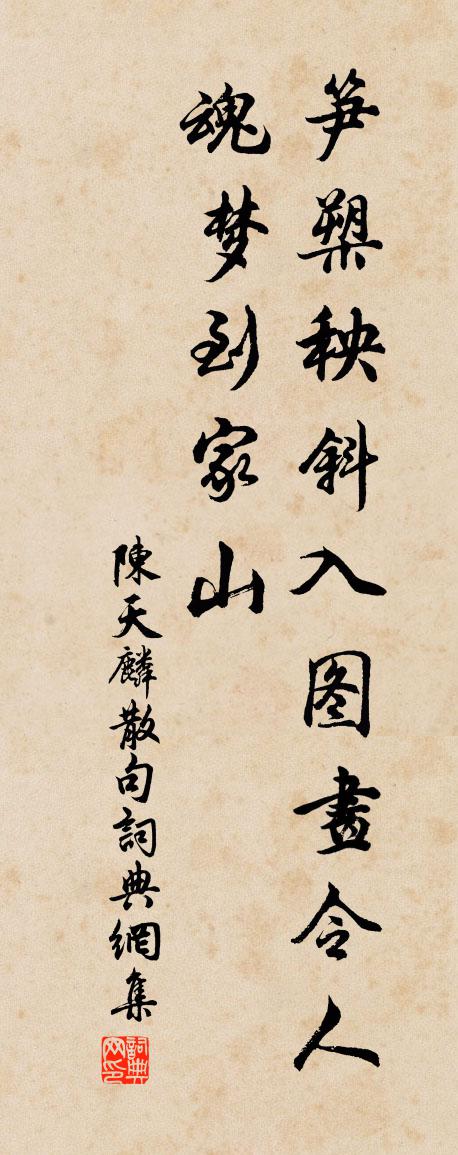 笋槊秧斜入图畫令人
魂梦到家山
陳天麟散句詞典網集
詞典网印